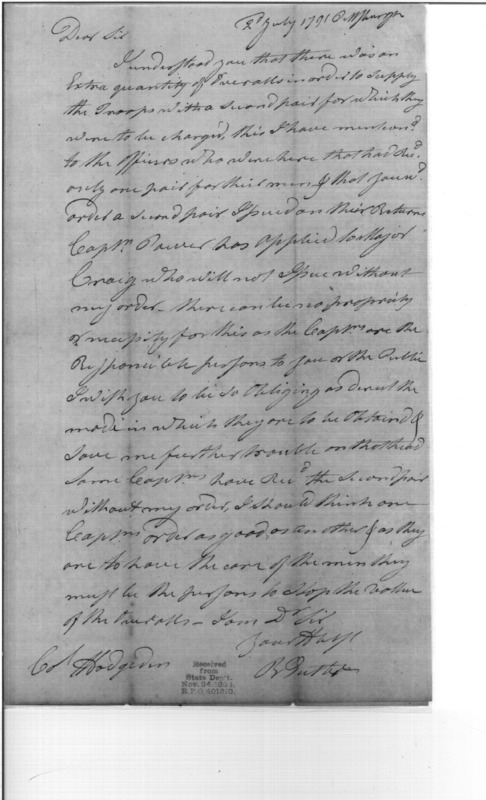 2d July 1791 Pittsburgh
Dear Sir
I understood you that there was an
Extra quantity of Overalls in order to Supply
the Troops with a second pair for which they
were to be charg'd, this I have mention'd
to the Officers who were here that had Recd.
only one pair for their men & that you wd.
order a Second pair Issued on their Returns
Captn. Power has applied to Major
Craig who will not Issue without
my order - there can be no propriety
or necessity for this as the Captns. are the
Responcible persons to you or the Public
I wish you to be so Obliging as direct the
mode in which they are to be Obtain'd &
save me further trouble on that head
Some Captns. have Recd. the Second pair
without my order, I should think one
Captns. order as good as another & as they
are to have the care of the men they
must be the persons to Stop the Value
of the Overalls - I am Dr. Sir
your Hble
R Butler
Col Hodgdon
Received
from
State Dep't.